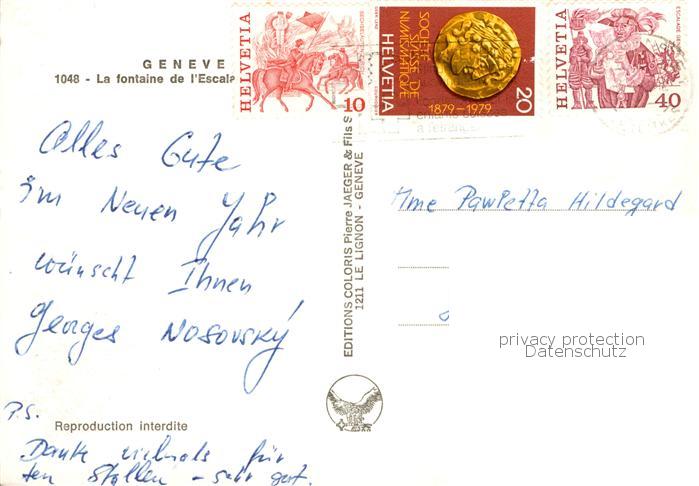 GENEVE
1048 - La fontaine de l'Escala
HELVETIA
10
SOCIÉTÉ
SUISSE DE
NUMISMATIQUE
HELVETIA
1879-1979
20
HELVETIA
ESCALADE GENÈVE
40
à l'étranger
Alles Gute
im Neuen Jahr
wünscht Ihnen
Georges Nosovský
P.S.
Reproduction interdite
Danke vielmals für
den Stollen - sehr gut.
EDITIONS COLORIS Pierre JAEGER & Fils S
1211 LE LIGNON - GENEVE
Mme Pawletta Hildegard
privacy protection
Datenschutz